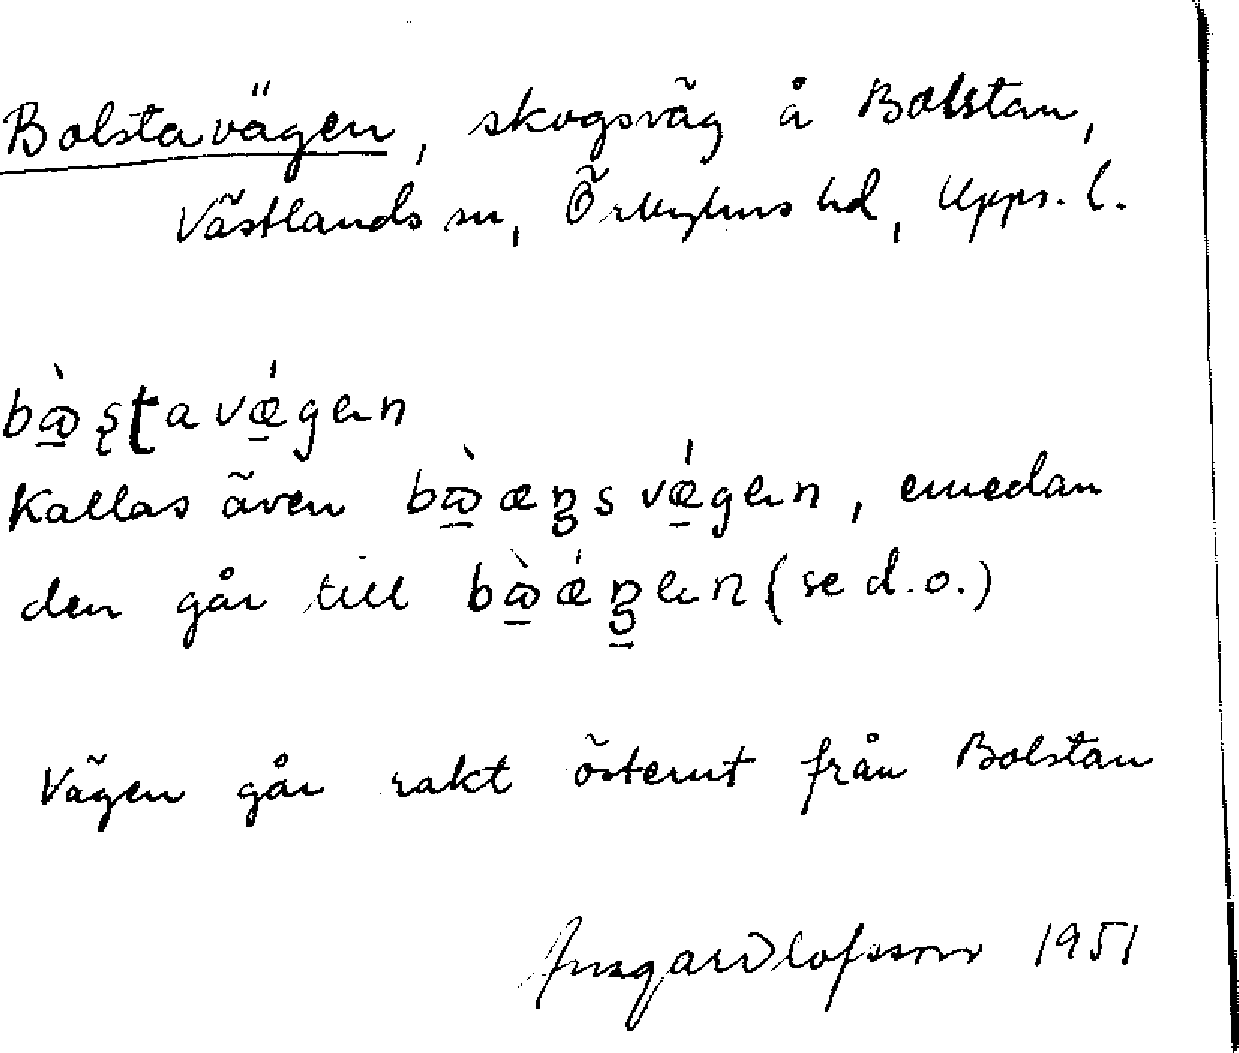 Bolstavägen, skogsväg å Bolstan,
Västlands sn, Örbyhus hd, Upps. l.
bꞷ̀ʂʈavǽgen
Kallas även bꞷ̀æŋsvǽgen, emedan
den går till bꞷ̀ǽŋen (se d.o.)
Vägen går rakt österut från Bolstan
Ansgar Olofsson 1951